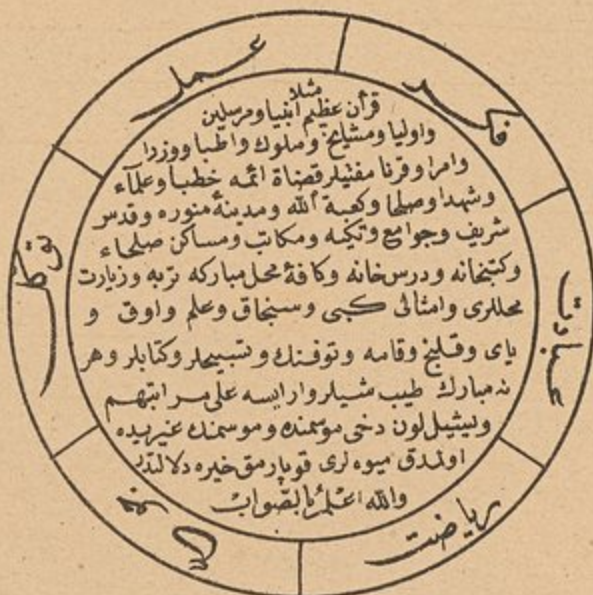 عمل
فكر
عبادت
رياضت
توكل
مثلا
قرآن عظيم انبيا ومرسلين
واوليا ومشايخ وملوك واطبا ووزرا
وامرا وقرنا مفتيلر قضاة ائمه خطبا وعلماء
وشهدا وصلحا وكعبة الله ومدينۀ منوره وقدس
شريف وجوامع وتكيه ومكاتب ومساكن صلحاء
وكتبخانه ودرس خانه وكافۀ محل مباركه تربه وزيارت
محللرى وامثالى كبى وسنجاق وعلم واوق و
ياى وقلينج وقامه وتوفنك وتسبيحلر وكتابلر وهر
نه مبارك طيب شيلر وار ايسه على مراتبهم
ويشيل لون دخى موسمنده وموسمنك غيريده
اولمدق ميوه لرى قوپارمق خيره دلالتدر
والله اعلم بالصواب